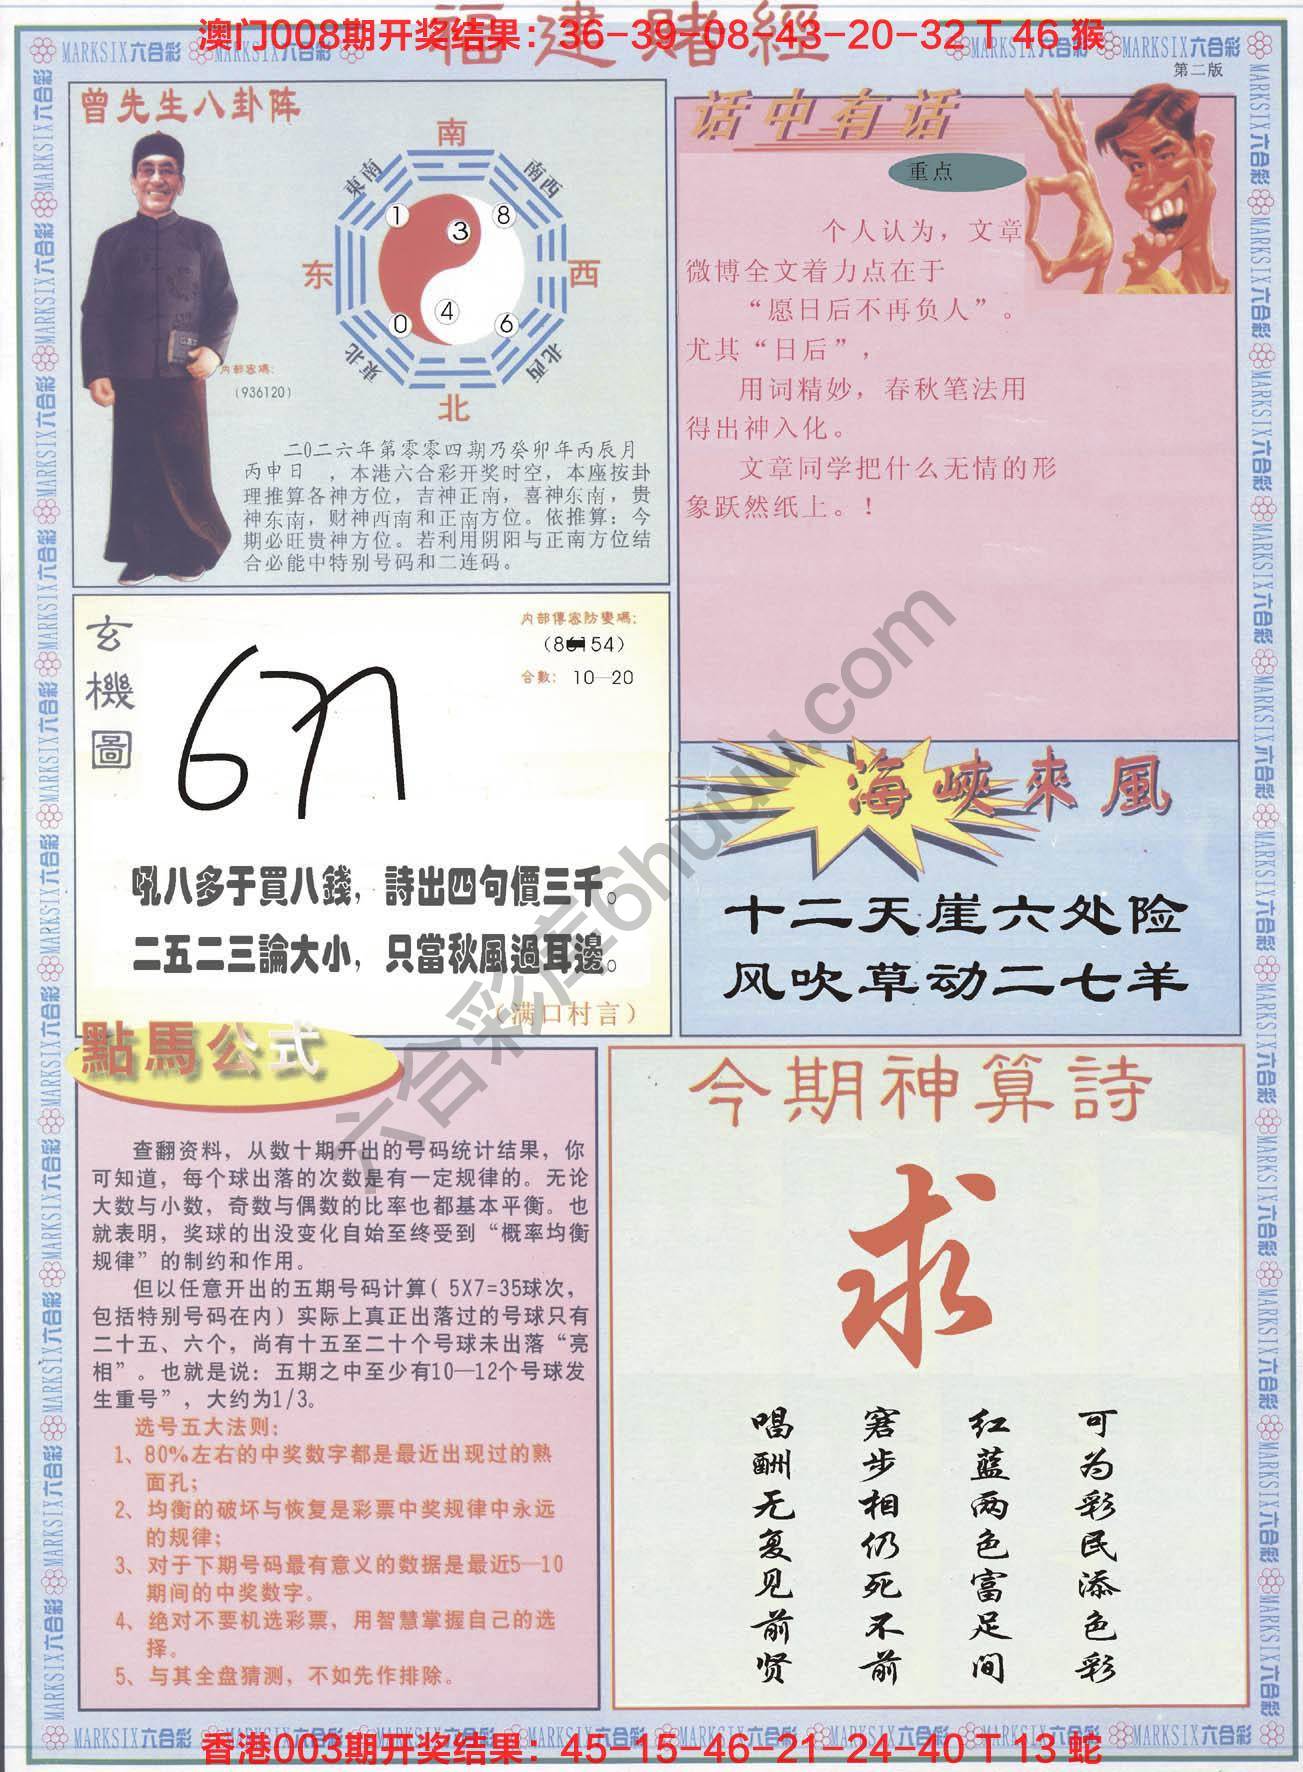 福建赌經
澳门008期开奖结果：36-39-08-43-20-32 T 46 猴
MARKSIX六合彩
第二版
曾先生八卦阵
南
東南
南西
1
8
3
东
西
4
0
6
東北
北西
北
内部密碼:
(936120)
二0二六年第零零四期乃癸卯年丙辰月
丙申日　，本港六合彩开奖时空，本座按卦
理推算各神方位，吉神正南，喜神东南，贵
神东南，财神西南和正南方位。依推算：今
期必旺贵神方位。若利用阴阳与正南方位结
合必能中特别号码和二连码。
话中有话
重点
个人认为，文章
微博全文着力点在于
“愿日后不再负人”。
尤其“日后”，
用词精妙，春秋笔法用
得出神入化。
文章同学把什么无情的形
象跃然纸上。！
玄機圖
内部傳密防變碼:
合數: 10—20
吼八多于買八錢，詩出四句價三千。
二五二三論大小，只當秋風過耳邊。
（满口村言）
海峽來風
十二天崖六处险
风吹草动二七羊
點馬公式
查翻资料，从数十期开出的号码统计结果，你
可知道，每个球出落的次数是有一定规律的。无论
大数与小数，奇数与偶数的比率也都基本平衡。也
就表明，奖球的出没变化自始至终受到“概率均衡
规律”的制约和作用。
但以任意开出的五期号码计算( 5X7=35球次，
包括特别号码在内）实际上真正出落过的号球只有
二十五、六个，尚有十五至二十个号球未出落“亮
相”。也就是说：五期之中至少有10—12个号球发
生重号”，大约为1/3。
选号五大法则：
1、80%左右的中奖数字都是最近出现过的熟
面孔；
2、均衡的破坏与恢复是彩票中奖规律中永远
的规律；
3、对于下期号码最有意义的数据是最近5—10
期间的中奖数字。
4、绝对不要机选彩票，用智慧掌握自己的选
择。
5、与其全盘猜测，不如先作排除。
今期神算詩
求
可为彩民添色彩
红蓝两色富足间
窘步相仍死不前
唱酬无复见前贤
六合彩库6huuu.com
香港003期开奖结果：45-15-46-21-24-40 T 13 蛇